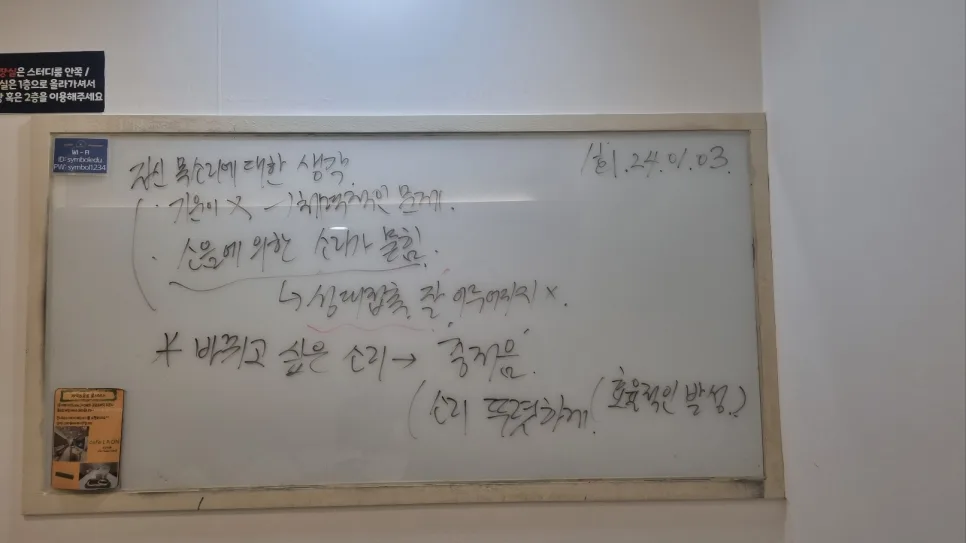 장실은 스터디룸 안쪽 /
실은 1층으로 올라가셔서
혹은 2층을 이용해주세요
Wi-Fi
ID:symboledu
PW:symbol1234
자신 목소리에 대한 생각.
1회. 24. 01. 03.
· 기운이 X → 체력적인 문제.
· 소음에 의한 소리가 묻힘.
↳ 성대접촉 잘 이루어지지 X.
* 바뀌고 싶은 소리 → 중저음.
(소리 뚜렷하게. (효율적인 발성.)